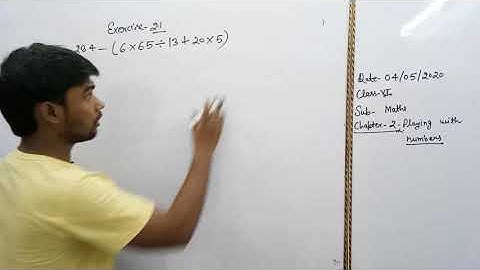 Exercise-21
234-(6×65÷13+20×5)
Date- 04/05/2020
Class-VI
Sub- Maths
Chapter-2-Playing with
numbers